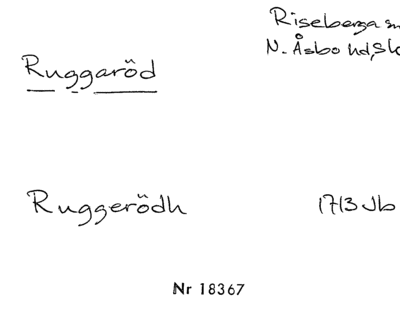 Riseberga sn
Ruggaröd
N. Åsbo hd, Sk
Ruggerödh
1713 Jb
Nr 18367